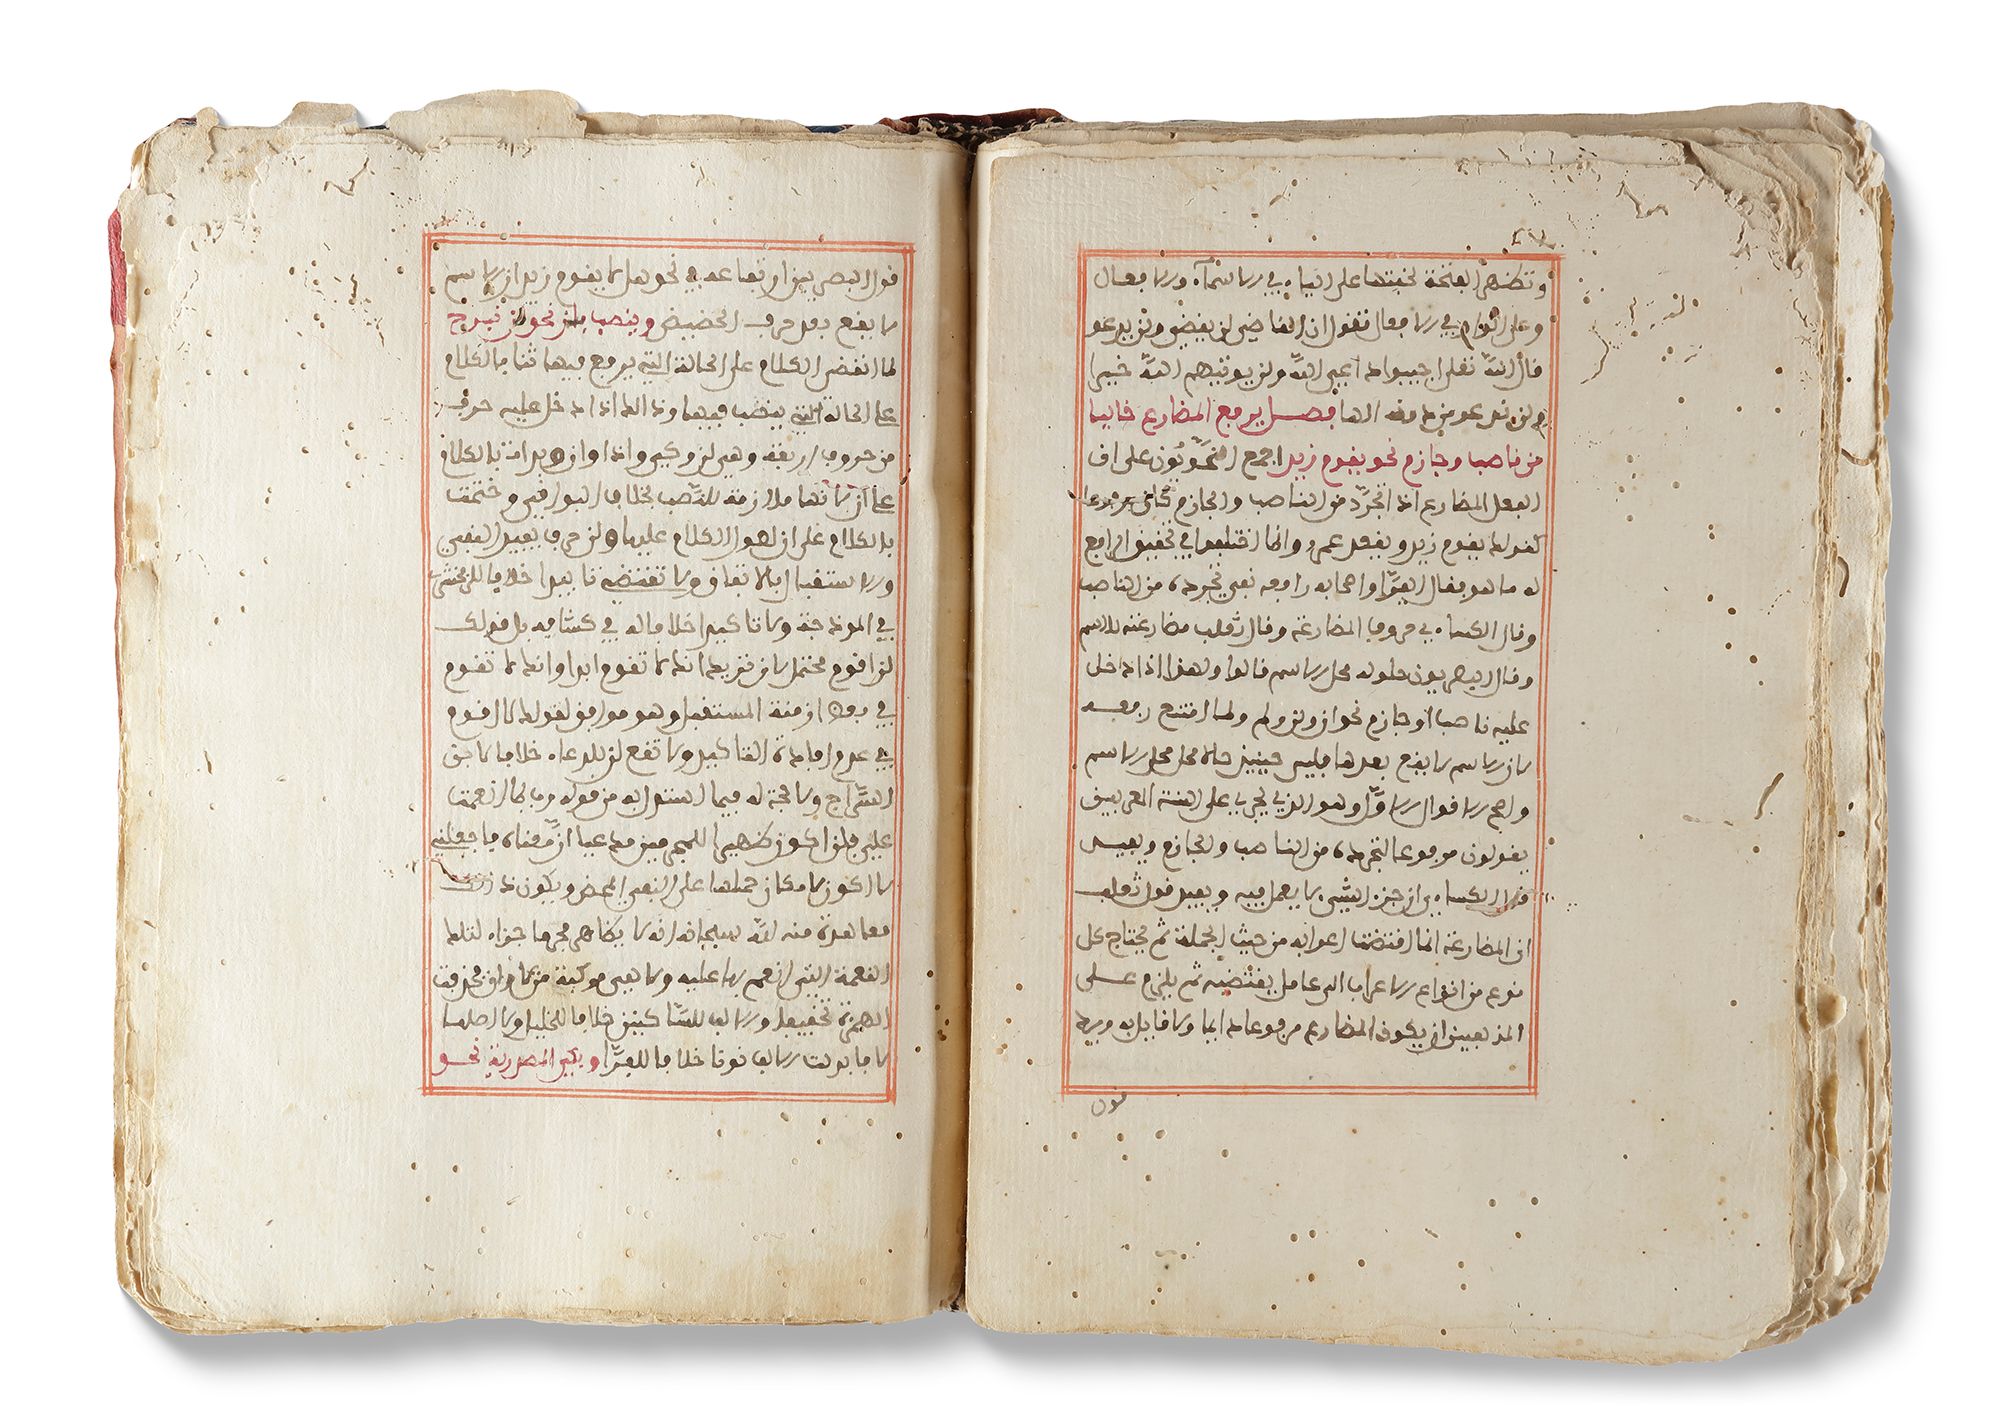 وتظهر الفتحة لخفتها على الياء في الاسماء والافعال
وعلى الواو في الافعال تقول ان القاضي لن يقضي ولن يدعو
قال الله تعلى اجيبوا داعي الله ولن يوتيهم الله خيرا
ولن ندعو من دونه الها فصل يرفع المضارع خاليا
من ناصب وجازم نحو يقوم زيد اجمع النحويون على ان
الفعل المضارع اذا تجرد من الناصب والجازم كان مرفوعا
كقولك يقوم زيد ويقعد عمرو وانما اختلفوا في تحقيق الرافع
له ما هو فقال الفرّا واصحابه رافعه نفس تجرده من الناصب
وقال الكساءي حروف المضارعة وقال ثعلب مضارعته للاسم
وقال البصريون حلوله محل الاسم قالوا ولهذا اذا دخل
عليه ناصب او جازم نحو ان ولن ولم ولما امتنع رفعه
لان الاسم لا يقع بعدها فليس حينيذ حالا محل الاسم
واصح الاقوال الاوّل وهو الذي يجري على السنة المعربين
يقولون مرفوع لتجرده من الناصب والجازم ويفسد
قول الكساءي ان جزء الشيء لا يعمل فيه ويفسد قول ثعلب
ان المضارعة انما اقتضت اعرابه من حيث الجملة ثم يحتاج كل
نوع من انواع الاعراب الى عامل يقتضيه ثم يلزم على
المذهبين ان يكون المضارع مرفوعا دايما ولا قايل به ويرد
قول
قول البصريين ارتفاعه في نحو هل لا يقوم زيد ان الاسم
لا يقع بعد حرف التحضيض وينصب بلن نحو لن نبرح
لما انقضى الكلام على الحالة التي يرفع فيها ثنا بالكلام
على الحالة التي ينصب فيها وذالك اذا دخل عليه حرف
من حروف اربعة وهي لن وكي واذا وان وبدا بالكلام
على لن لانها ملازمة للنّصب بخلاف البواقي وختمت
بالكلام على ان لطول الكلام عليها ولن حرف يفيد النفي
والاستقبال بالاتفاق ولا تقتضي تابيدا خلافا للزمخشري
في انموذجه ولا تاكيدا خلافا له في كشافه بل قولك
لن اقوم محتمل لان تريد انك لا تقوم ابدا وانك لا تقوم
في بعض ازمنة المستقبل وهو موافق لقولك لا اقوم
في عدم افادة التاكيد ولا تقع لن للدعاء خلافا لابن
السّراج ولا حجة له فيما استدل به من قوله رب بما انعمت
علي فلن اكون ظهيرا للمجرمين مدعيا ان معناه فاجعلني
لا اكون لامكان حملها على النفي المحض ويكون ذالك
معاهدة منه لله سبحانه انه لا يظاهر مجرما جزاء لتلك
النعمة التي انعم بها عليه ولا هي مركبة من لا وان فحذفت
الهمزة تخفيفا والالف للساكنين خلافا للخليل ولا اصلها
لا فابدلت الالف نونا خلافا للفرّا وبكي المصدرية نحو